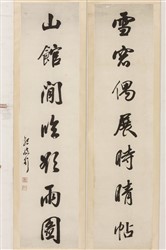 雪窗偶展時晴帖
山館閒臨欲雨圖